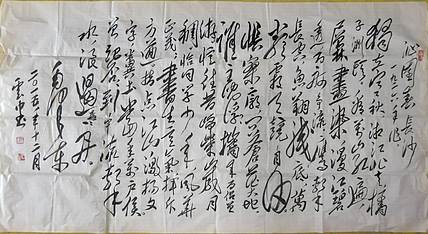 沁園春 长沙
一九二五年作
独立寒秋湘江北去橘
子洲头看万山红遍
层林盡染漫江碧
透百舸争流鹰击
长空鱼翔浅底万
类霜天竞自由
怅寥廓问苍茫大地
谁主沉浮携来百侣曾
游忆往昔峥嵘岁月
稠恰同学少年风华
正茂書生意气挥斥
方遒指点江山激扬文
字粪土当年万户侯
曾记否到中流击
水浪遏飞舟
毛泽东
二〇〇五年十二月